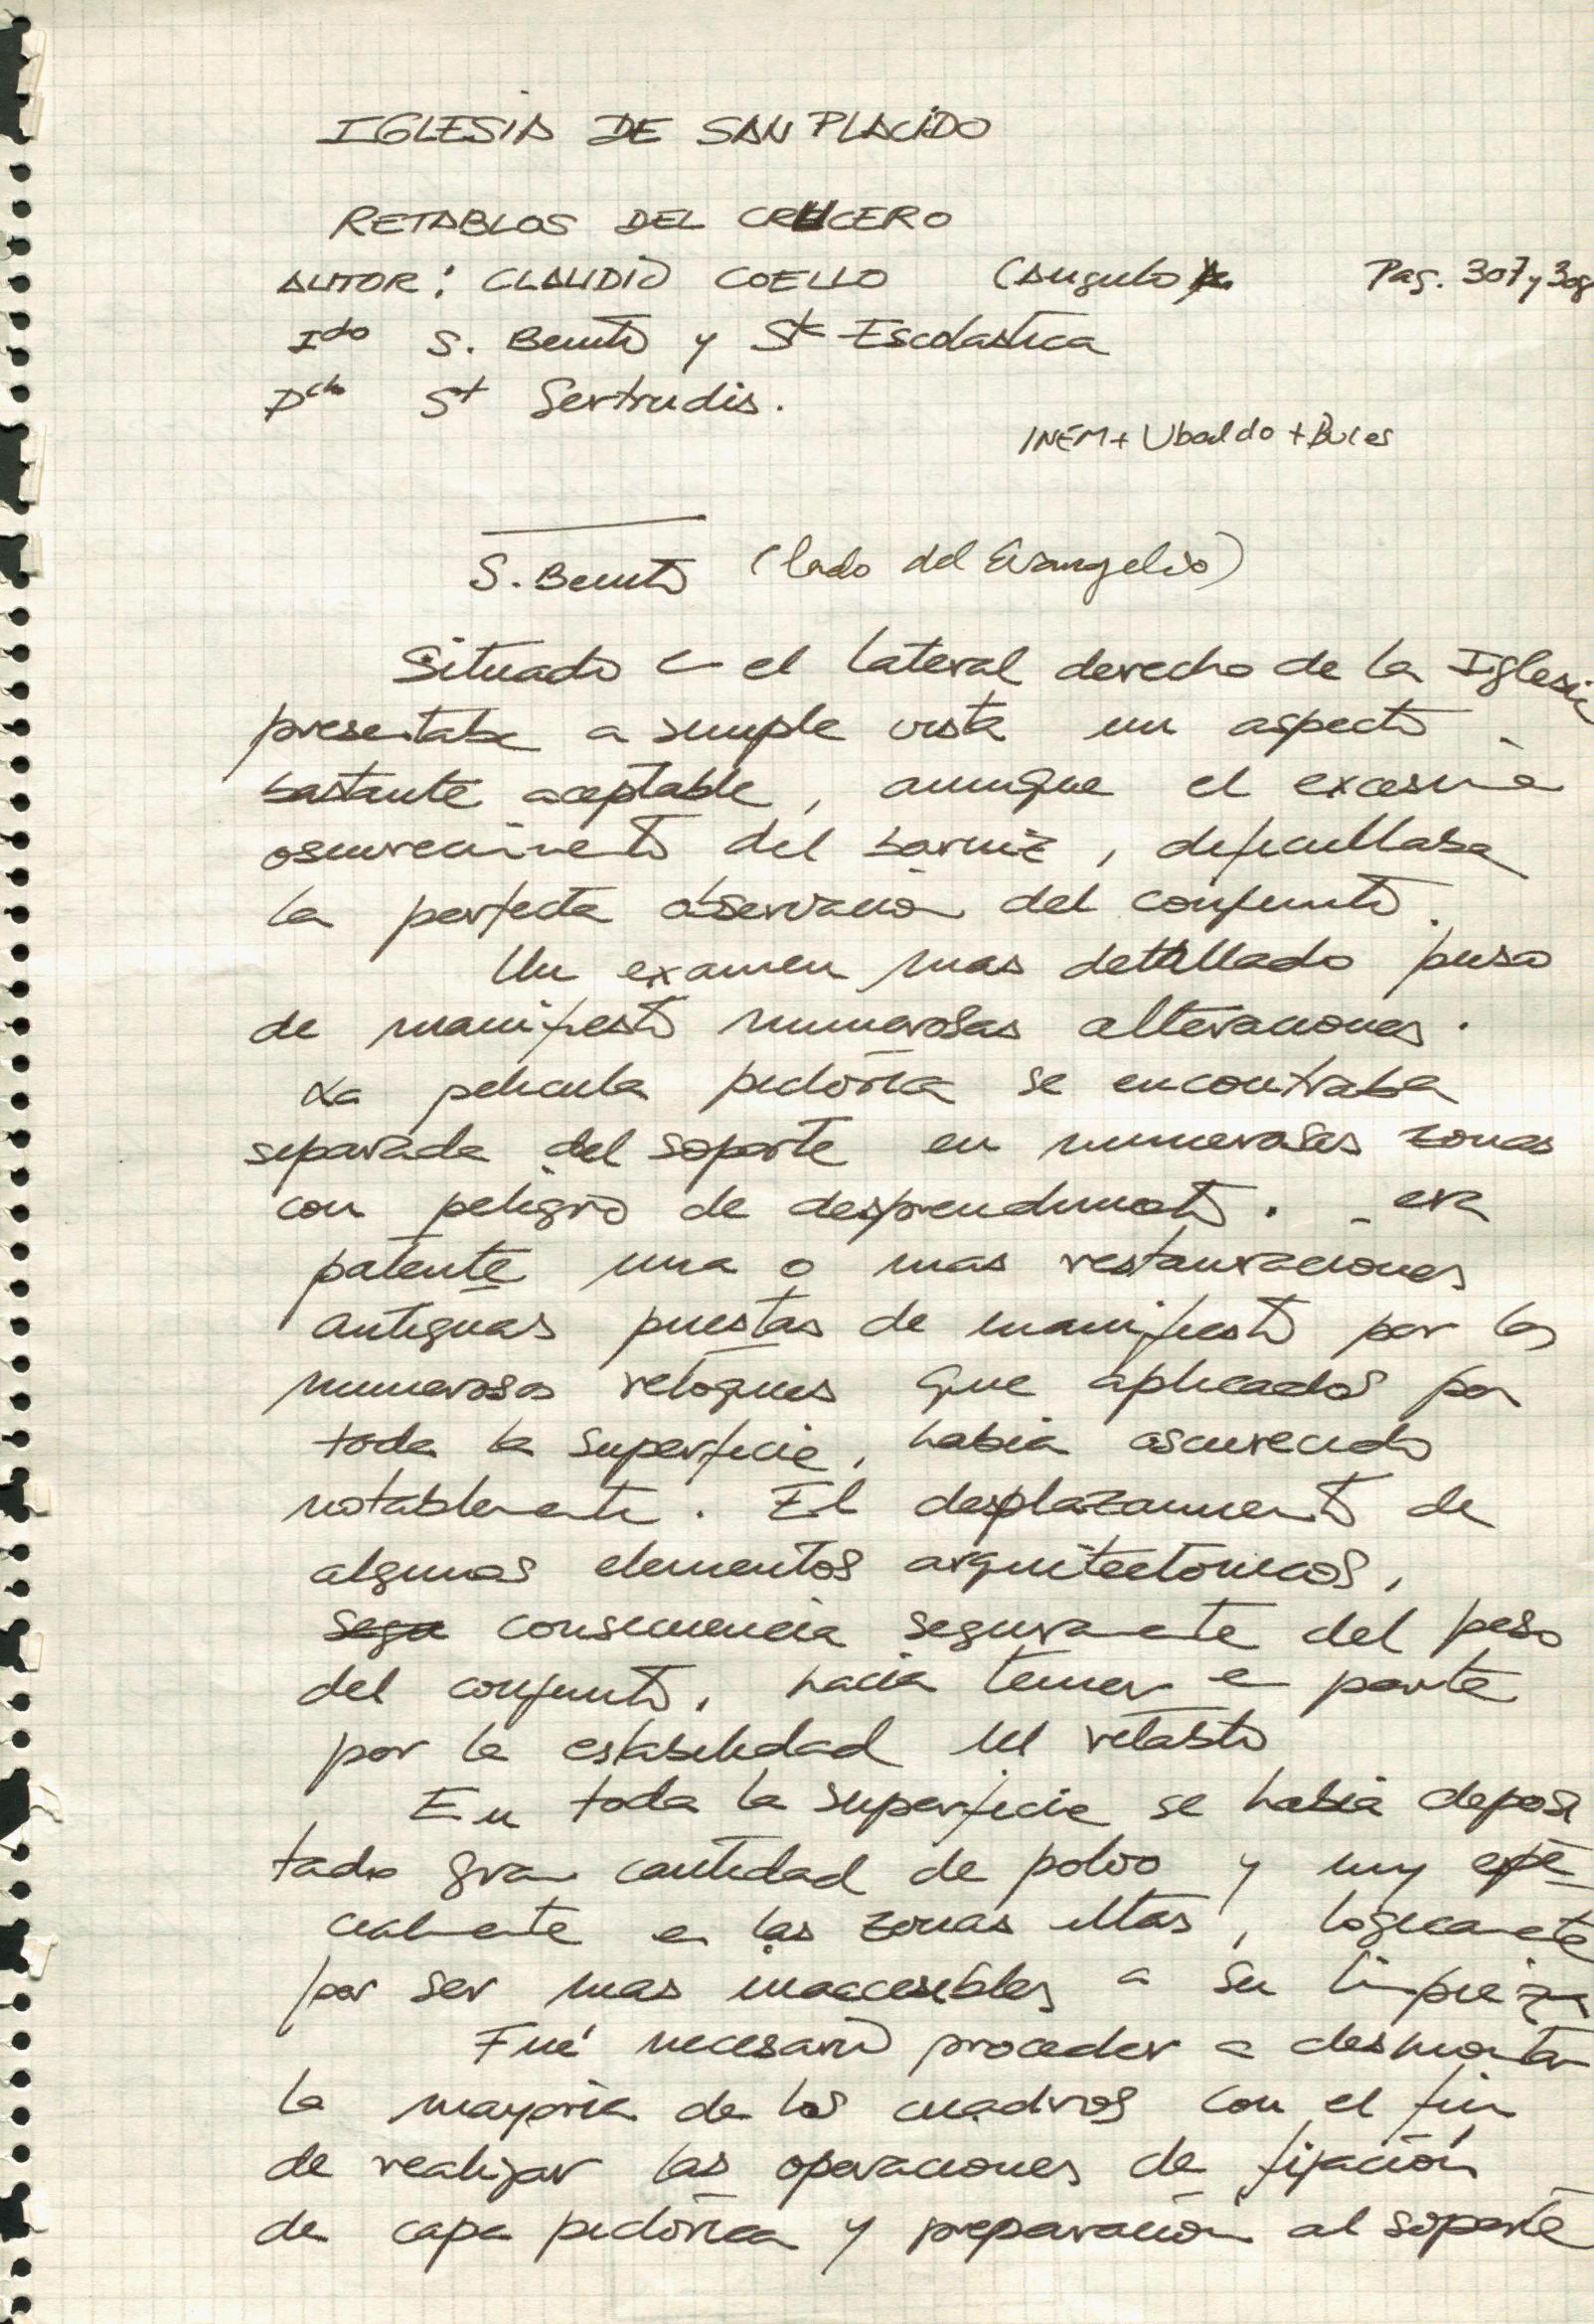 IGLESIA DE SAN PLACIDO
RETABLOS DEL CRUCERO
AUTOR: CLAUDIO COELLO (Angulo Pag. 307 y 308
Ido S. Benito y Sta Escolastica
Dcho St Gertrudis.
INEM + Ubaldo + Bules
S. Benito (lado del Evangelio)
Situado en el lateral derecho de la Iglesia
presentaba a simple vista un aspecto
bastante aceptable, aunque el excesivo
oscurecimiento del barniz, dificultaba
la perfecta observacion del conjunto.
Un examen mas detallado puso
de manifiesto numerosas alteraciones.
La pelicula pictorica se encontraba
separada del soporte en numerosas zonas
con peligro de desprendimiento. era
patente una o mas restauraciones
antiguas puestas de manifiesto por los
numerosos retoques que aplicados por
toda la superficie, habia oscurecido
notablemente. El desplazamiento de
algunos elementos arquitectonicos,
segu consecuencia seguramente del peso
del conjunto, hacia temer en parte
por la estabilidad del retablo
En toda la superficie se habia deposi
tado gran cantidad de polvo y muy espe-
cialmente en las zonas altas, logicamente
por ser mas inaccesibles a su limpieza
Fué necesario proceder a desmontar
la mayoria de los cuadros con el fin
de realizar las operaciones de fijación
de capa pictórica y preparación al soporte